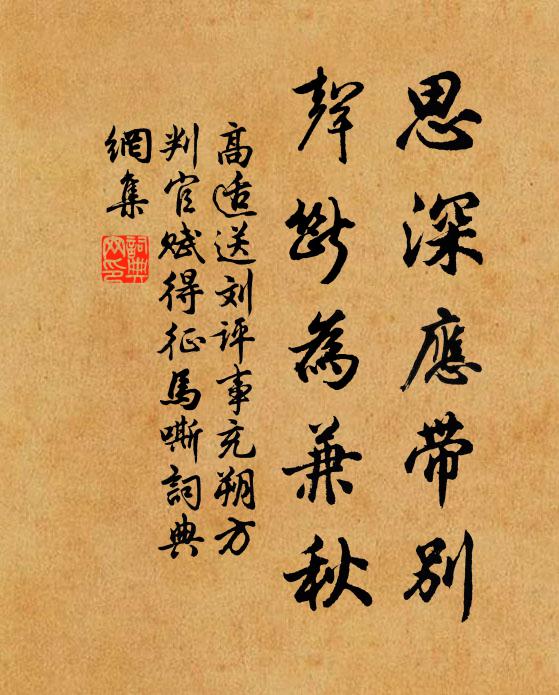 思深應帶别
聲斷為兼秋
高適送刘評事充朔方
判官賦得征馬嘶詞典
網集
詞典網印